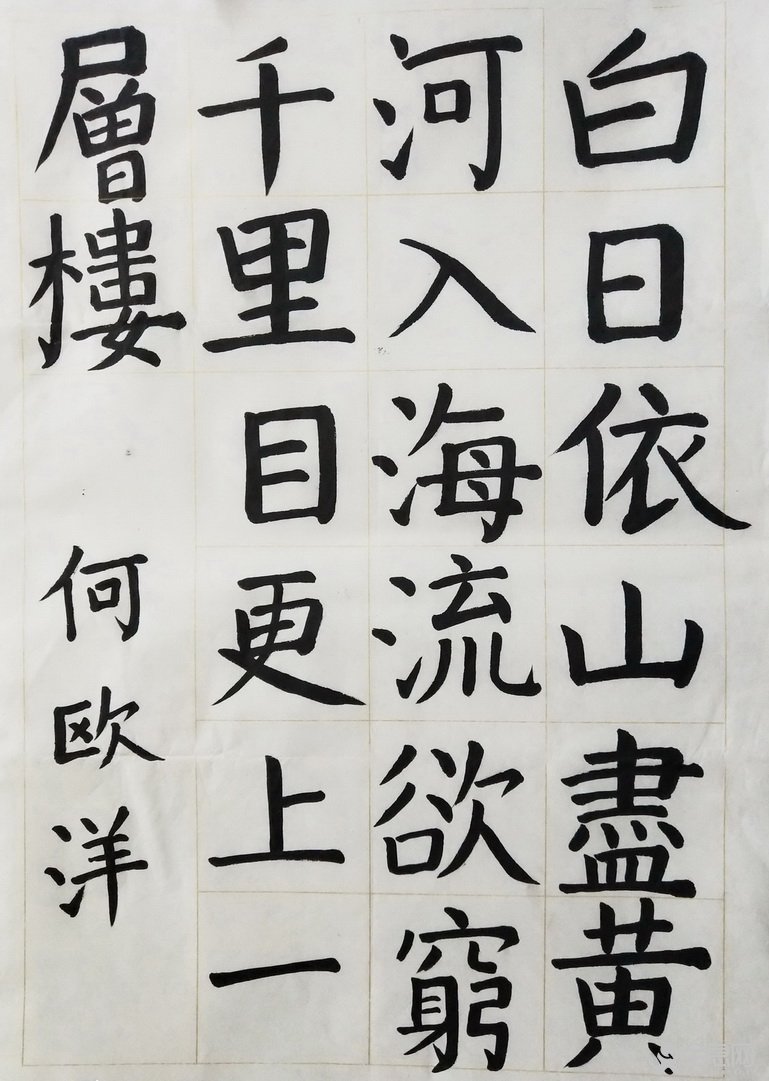 白日依山盡黄
河入海流欲窮
千里目更上一
層樓
何欧洋